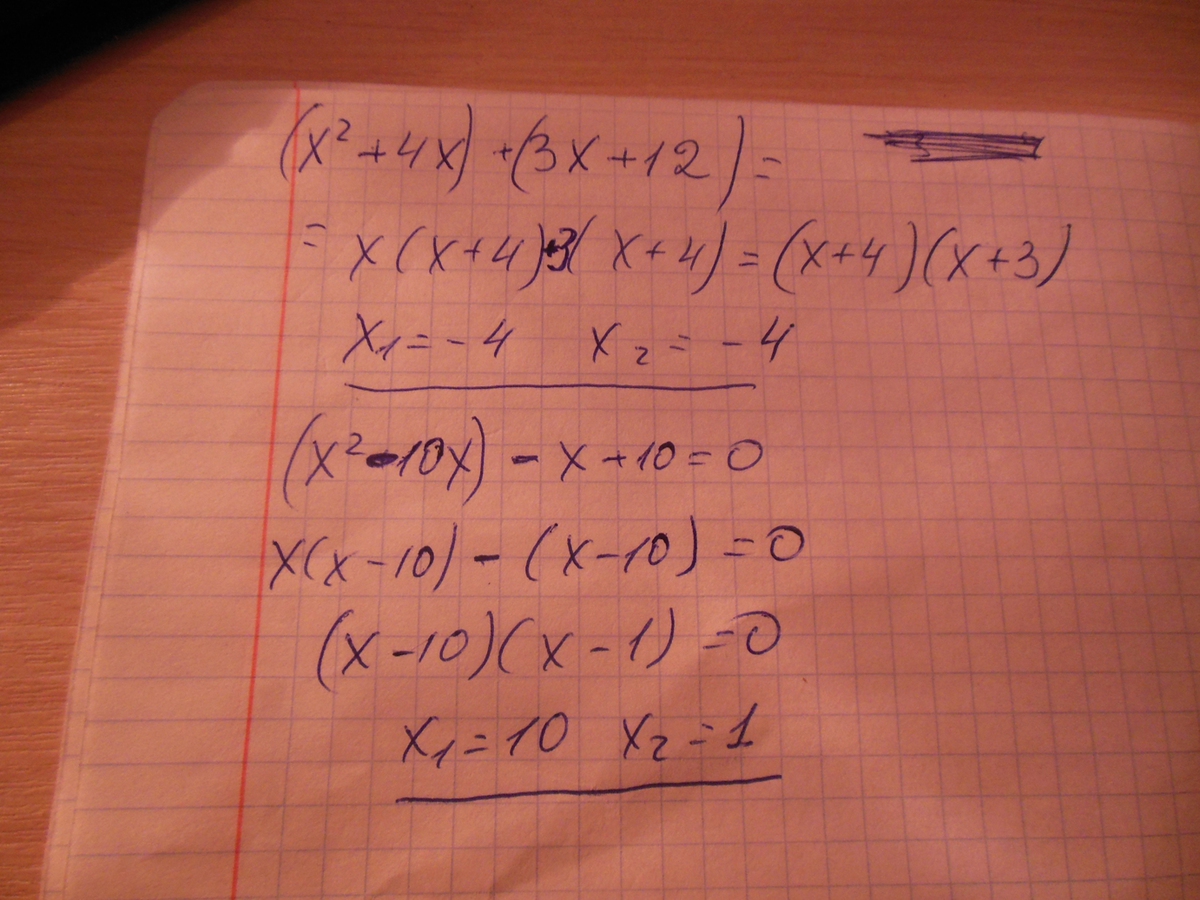 (x² + 4x) + (3x + 12) =
= x(x + 4) + 3(x + 4) = (x + 4)(x + 3)
x₁ = -4 x₂ = -4
(x² - 10x) - x + 10 = 0
x(x - 10) - (x - 10) = 0
(x - 10)(x - 1) = 0
x₁ = 10 x₂ = 1